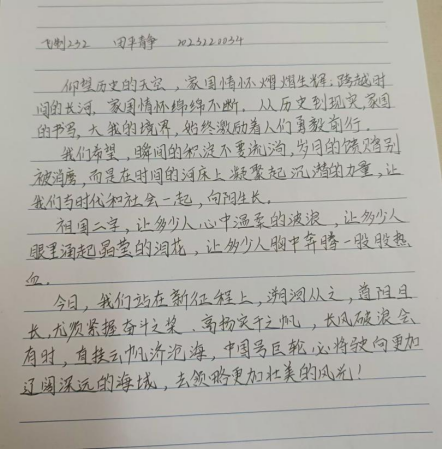 飞制232 田苹静 2023220034
仰望历史的天空，家国情怀熠熠生辉；跨越时
间的长河，家国情怀绵绵不断。从历史到现实，家国
的书写，大我的境界，始终激励着人们勇毅前行。
我们希望，瞬间的积淀不要流淌，岁月的馈赠别
被消磨，而是在时间的河床上凝聚起沉潜的力量，让
我们与时代和社会一起，向阳生长。
祖国二字，让多少人心中温柔的波浪，让多少人
眼里涌起晶莹的泪花，让多少人胸中奔腾一股股热
血。
今日，我们站在新征程上，溯洄从之，道阻且
长，尤须紧握奋斗之桨、高扬实干之帆，长风破浪会
有时，直挂云帆济沧海，中国号巨轮，必将驶向更加
辽阔深远的海域，去领略更加壮美的风光！